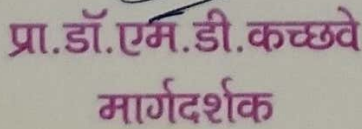 प्रा.डॉ.एम.डी.कच्छवे
मार्गदर्शक